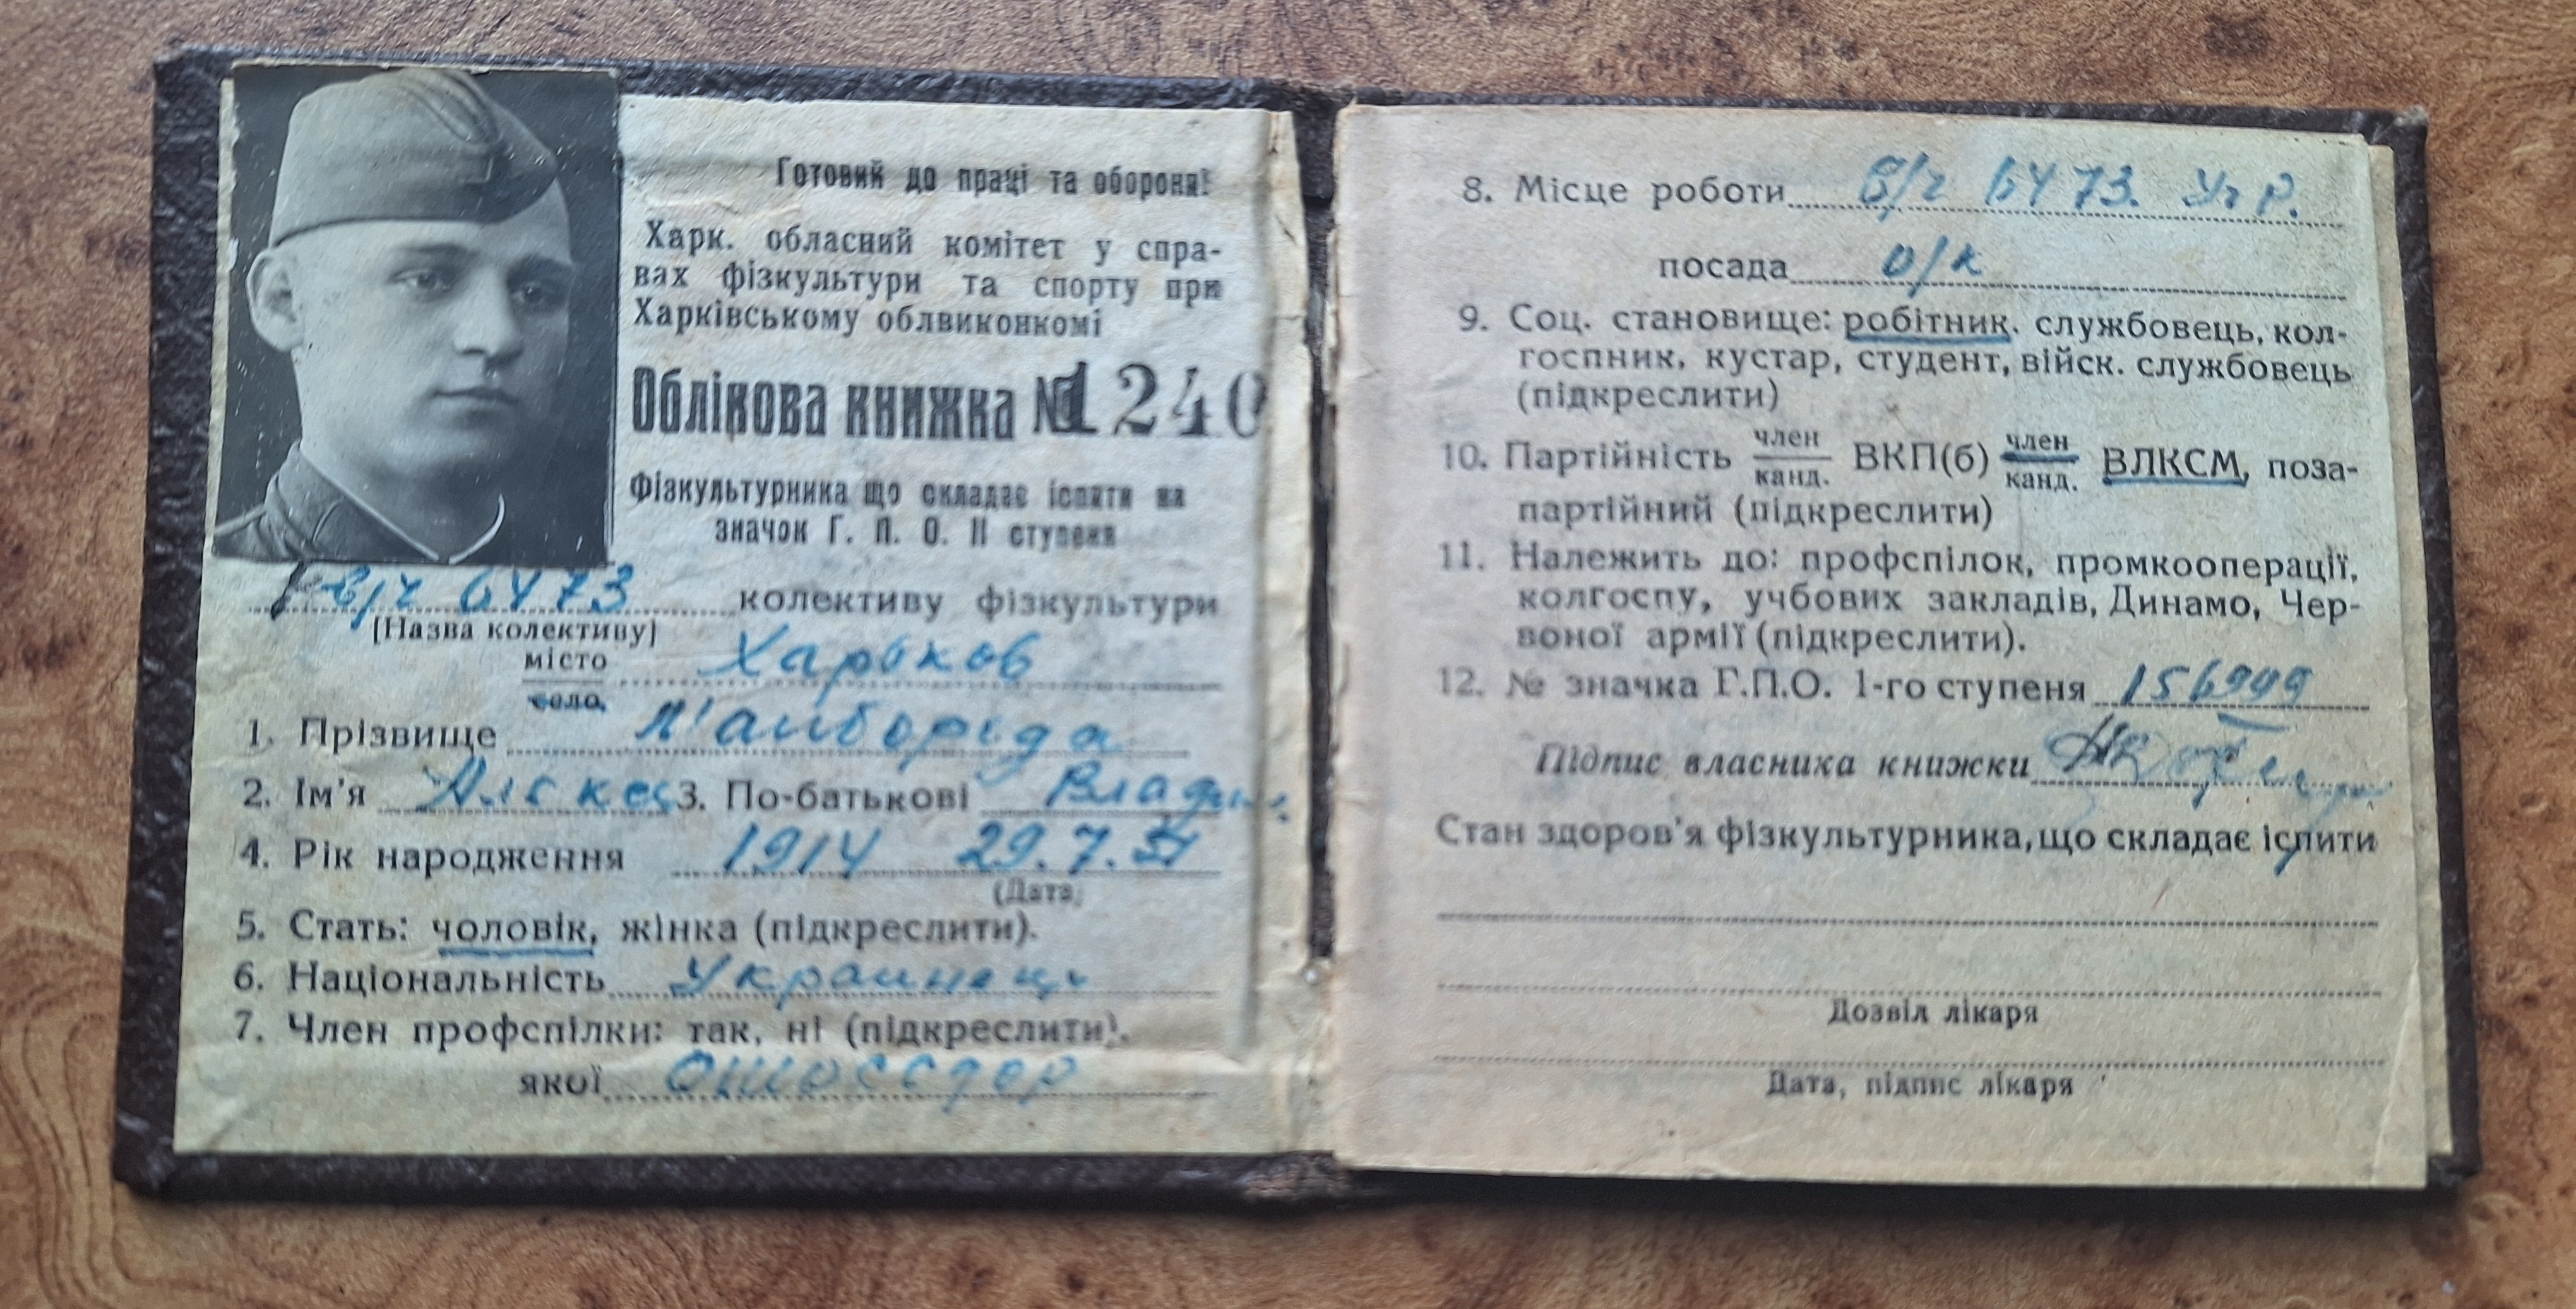 Готовий до праці та оборони!
Харк. обласний комітет у спра-
вах фізкультури та спорту при
Харківському облвиконкомі
Облікова книжка № 1240
Фізкультурника що складає іспити на
значок Г. П. О. II ступеня
в/ч 6473 колективу фізкультури
(Назва колективу)
місто
село, Харьков
1. Прізвище
2. Ім'я Алексей 3. По-батькові Владим.
4. Рік народження 1914 29.7.
(Дата)
5. Стать: чоловік, жінка (підкреслити).
6. Національність Украинец
7. Член профспілки: так, ні (підкреслити).
якої
8. Місце роботи в/ч 6473.
посада
9. Соц. становище: робітник, службовець, кол-
госпник, кустар, студент, військ. службовець
(підкреслити)
10. Партійність член канд. ВКП(б) член канд. ВЛКСМ, поза-
партійний (підкреслити)
11. Належить до: профспілок, промкооперації,
колгоспу, учбових закладів, Динамо, Чер-
воної армії (підкреслити).
12. № значка Г.П.О. 1-го ступеня
Підпис власника книжки
Стан здоров'я фізкультурника, що складає іспити
Дозвіл лікаря
Дата, підпис лікаря